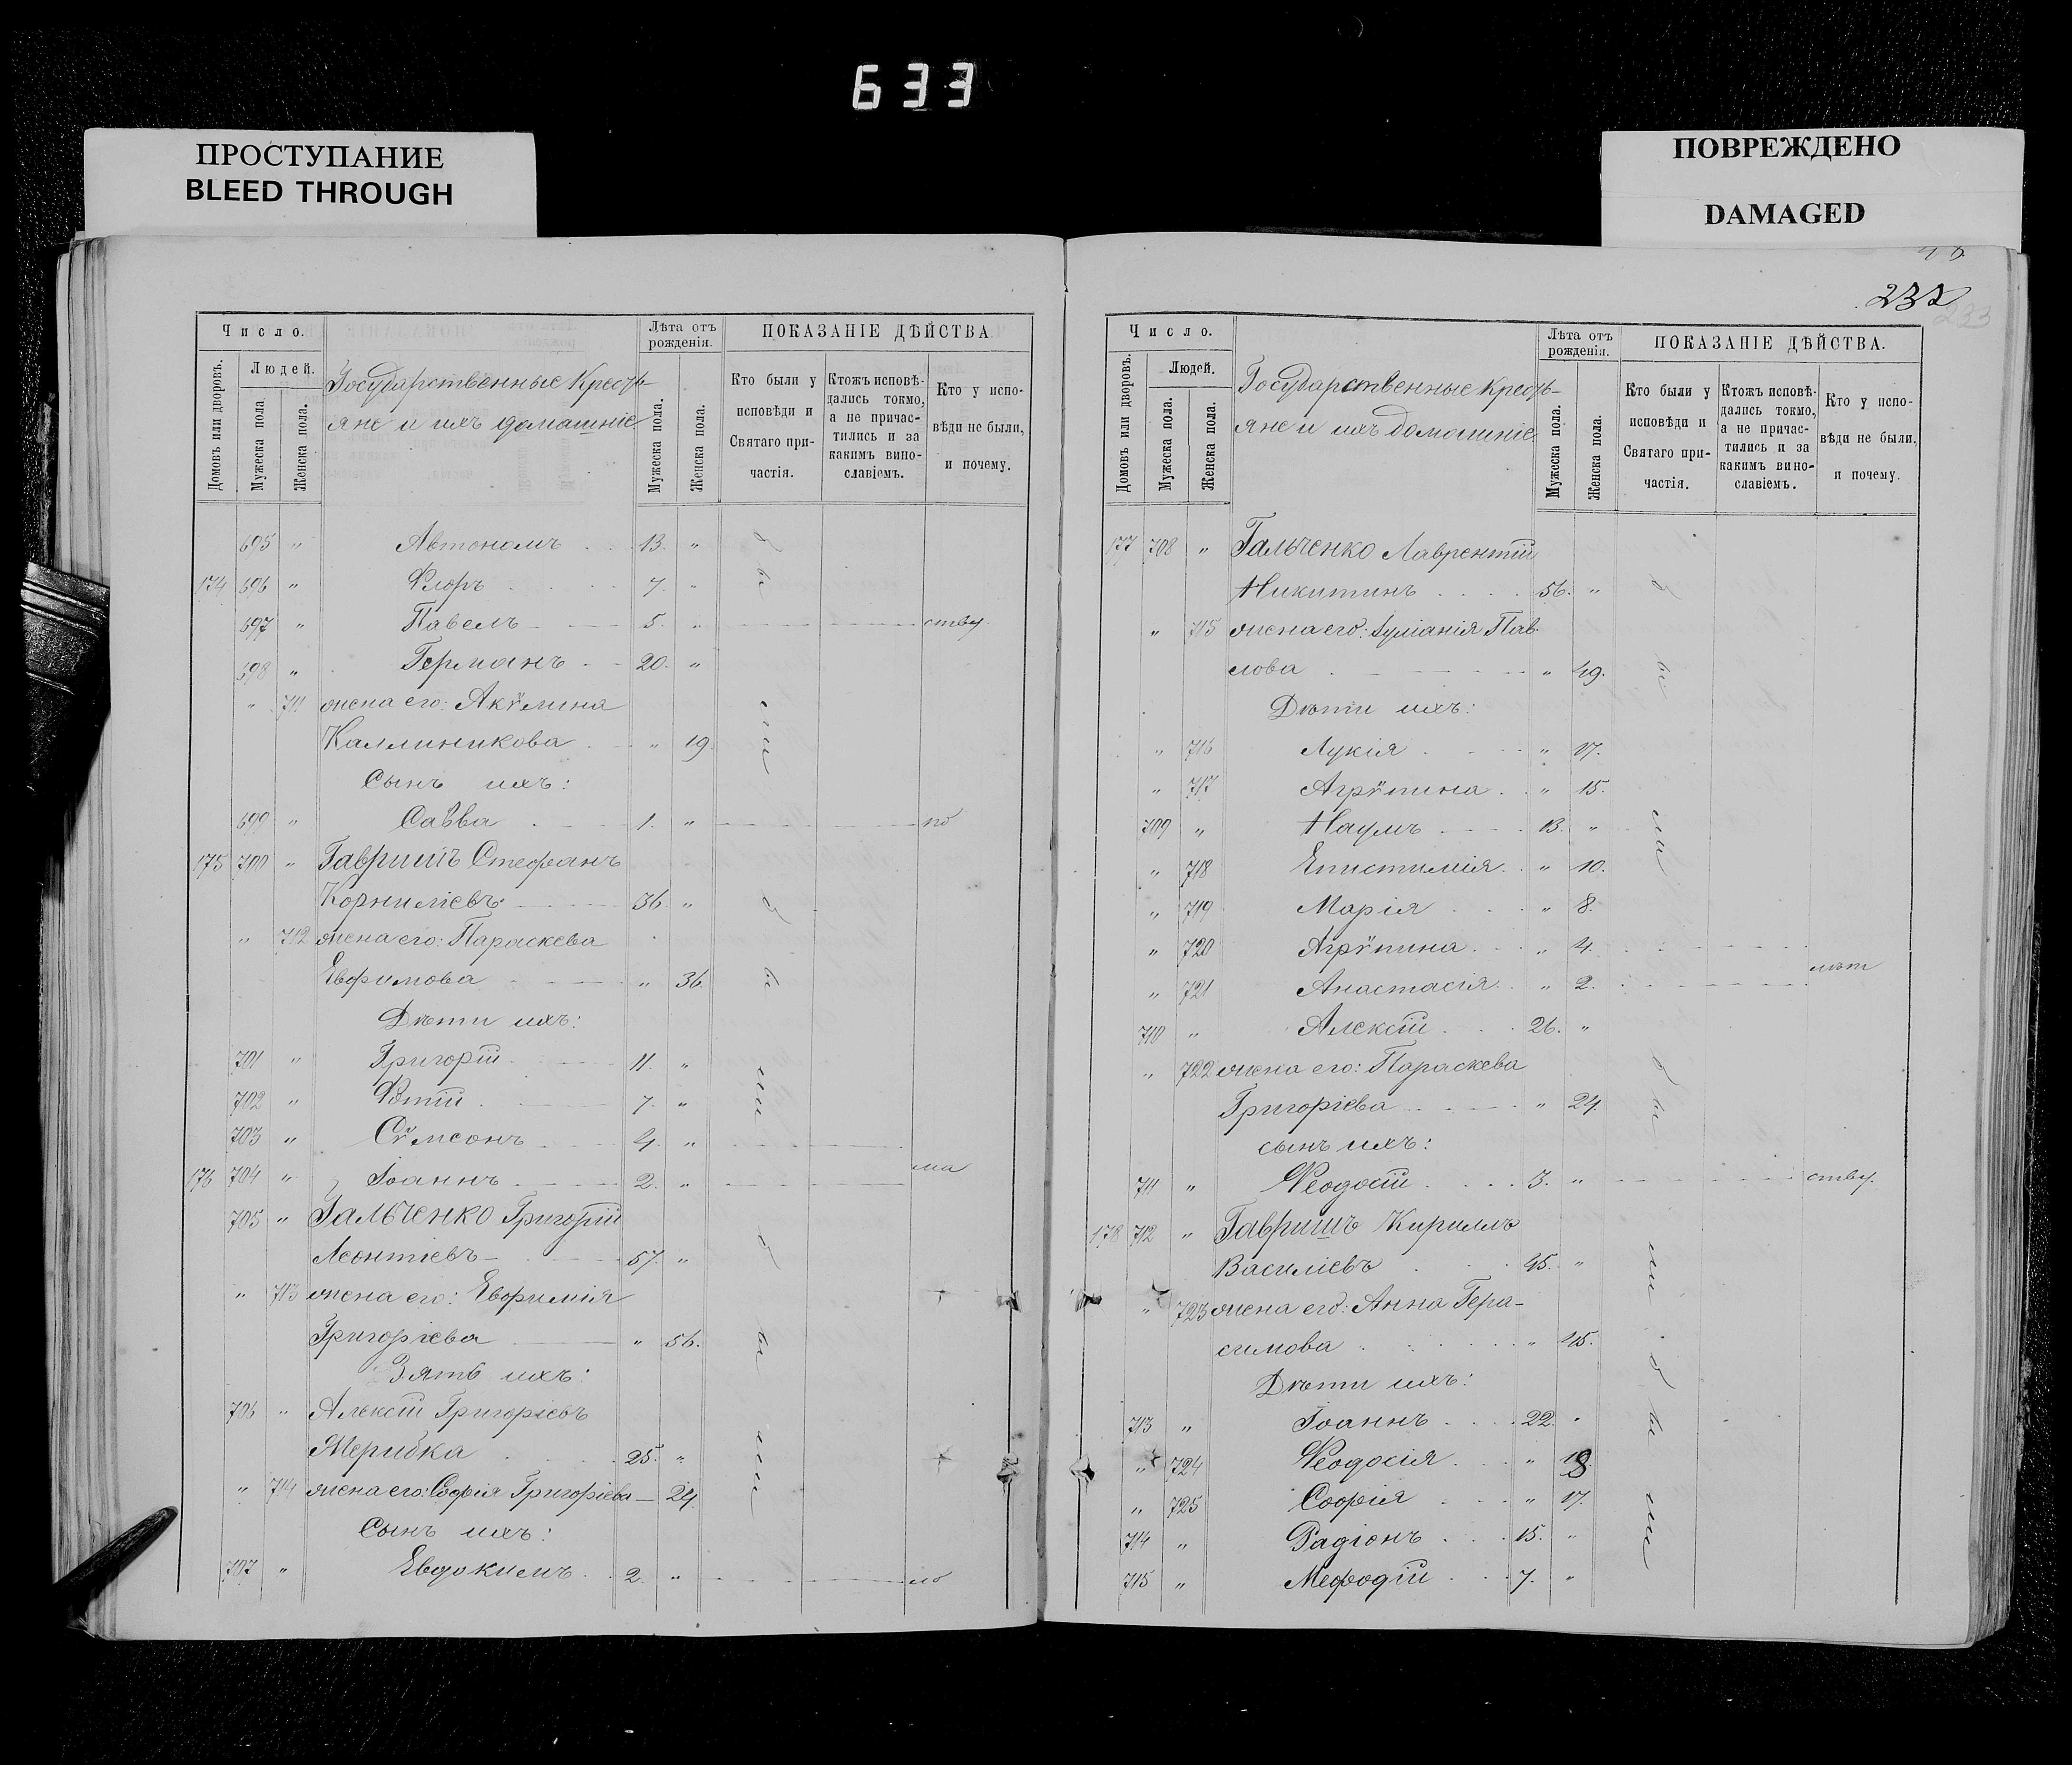 633
ПРОСТУПАНИЕ
BLEED THROUGH
ПОВРЕЖДЕНО
DAMAGED
Число.
Домовъ или дворовъ.
Людей.
Мужеска пола.
Женска пола.
Государственные Кресть-
яне и ихъ домашніе
Лѣта отъ рожденія.
Мужеска пола.
Женска пола.
ПОКАЗАНІЕ ДѢЙСТВА
Кто были у исповѣди и Святаго причастія.
Ктожъ исповѣдались токмо, а не причастились и за какимъ винословіемъ.
Кто у исповѣди не были, и почему.
695 " Автономъ 13. "
174 696 " Флоръ 7. "
697 " Павелъ 5. " ству
698 " Германъ 20. "
" 711 жена его: Акѵлина
Каллиникова " 19.
Сынъ ихъ:
699 " Савва 1. " по
175 700 " Гавришъ Стефанъ
Корниліевъ 36 "
" 712 жена его: Параскева
Евфимова " 36
Дѣти ихъ:
701 " Григорій 11. "
702 " Фотій 7. "
703 " Сѵмсонъ 4. "
176 704 " Іоаннъ 2. " ма
705 " Гальченко Григорій
Леонтіевъ 57. "
" 713 жена его: Евфимія
Григоріева " 56.
Зять ихъ:
706 " Алексій Григорьевъ
25. "
" 714 жена его: Софія Григоріева 24
Сынъ ихъ:
707 " Евдокимъ 2. "
232
233
Число.
Домовъ или дворовъ.
Людей.
Мужеска пола.
Женска пола.
Государственные Кресть-
яне и ихъ домашніе
Лѣта отъ рожденія.
Мужеска пола.
Женска пола.
ПОКАЗАНІЕ ДѢЙСТВА.
Кто были у исповѣди и Святаго причастія.
Ктожъ исповѣдались токмо, а не причастились и за какимъ винословіемъ.
Кто у исповѣди не были, и почему.
177 708 " Гальченко Лаврентій
Никитинъ 56. "
" 715 жена его: Іуліанія Пав-
лова " 49.
Дѣти ихъ:
" 716 Лукія " 17.
" 717 Агрѵпина " 15.
709 " Наумъ 13. "
" 718 Епистимія " 10.
" 719 Марія " 8.
" 720 Агрѵпина " 4.
" 721 Анастасія " 2.
710 " Алексій 26. "
" 722 жена его: Параскева
Григоріева " 24
сынъ ихъ:
711 " Ѳеодосій 3. " ству.
178 712 " Гавришъ Кириллъ
Василіевъ 45. "
" 723 жена его: Анна Гера-
симова " 45.
Дѣти ихъ:
713 " Іоаннъ 22. "
" 724 Ѳеодосія " 18
" 725 Софія " 17.
714 " Радіонъ 15. "
715 " Мефодій 7. "